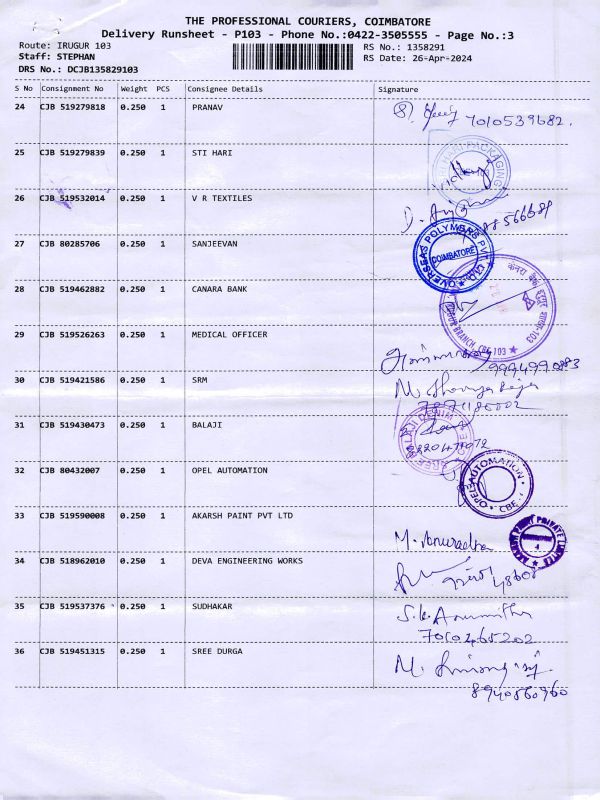 THE PROFESSIONAL COURIERS, COIMBATORE
Delivery Runsheet - P103 - Phone No.:0422-3505555 - Page No.:3
Route: IRUGUR 103 RS No.: 1358291
Staff: STEPHAN RS Date: 26-Apr-2024
DRS No.: DCJB135829103
S No Consignment No Weight PCS Consignee Details Signature
24 CJB 519279818 0.250 1 PRANAV
7010539682.
25 CJB 519279839 0.250 1 STI HARI
26 CJB 519532014 0.250 1 V R TEXTILES
27 CJB 80285706 0.250 1 SANJEEVAN
OVERSEAS POLYMERS PVT LTD
COIMBATORE
28 CJB 519462882 0.250 1 CANARA BANK
BRANCH, CBE 103
29 CJB 519526263 0.250 1 MEDICAL OFFICER
30 CJB 519421586 0.250 1 SRM
31 CJB 519430473 0.250 1 BALAJI
BALAJI DENIM
32 CJB 80432007 0.250 1 OPEL AUTOMATION
OPEL AUTOMATION
CBE
33 CJB 519590008 0.250 1 AKARSH PAINT PVT LTD
M. Anuradha
AKARSH PAINT PRIVATE LIMITED
34 CJB 518962010 0.250 1 DEVA ENGINEERING WORKS
35 CJB 519537376 0.250 1 SUDHAKAR
7010465202
36 CJB 519451315 0.250 1 SREE DURGA
8940560960